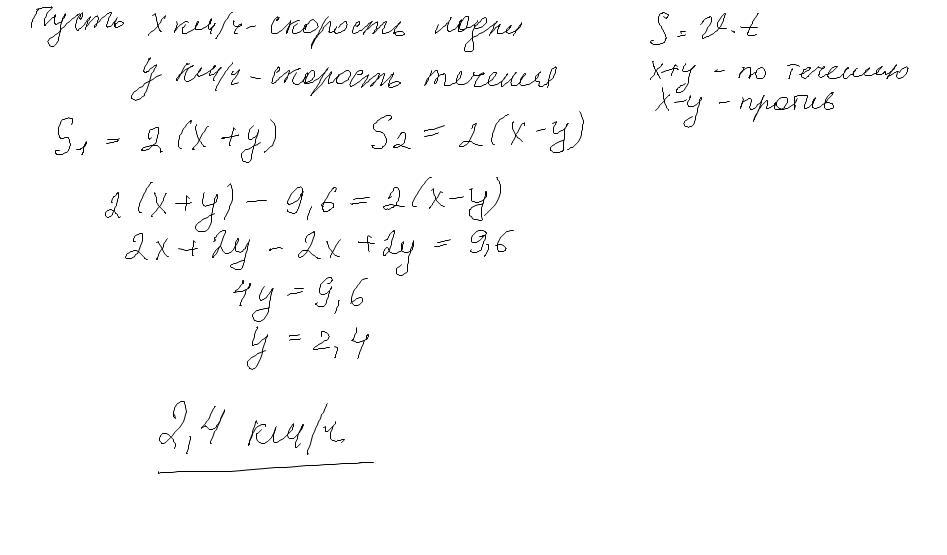 Пусть x км/ч - скорость лодки
y км/ч - скорость течения
S = V · t
x+y - по течению
x-y - против
S1 = 2 (x+y)
S2 = 2 (x-y)
2 (x+y) - 9,6 = 2(x-y)
2x + 2y - 2x + 2y = 9,6
4y = 9,6
y = 2,4
2,4 км/ч